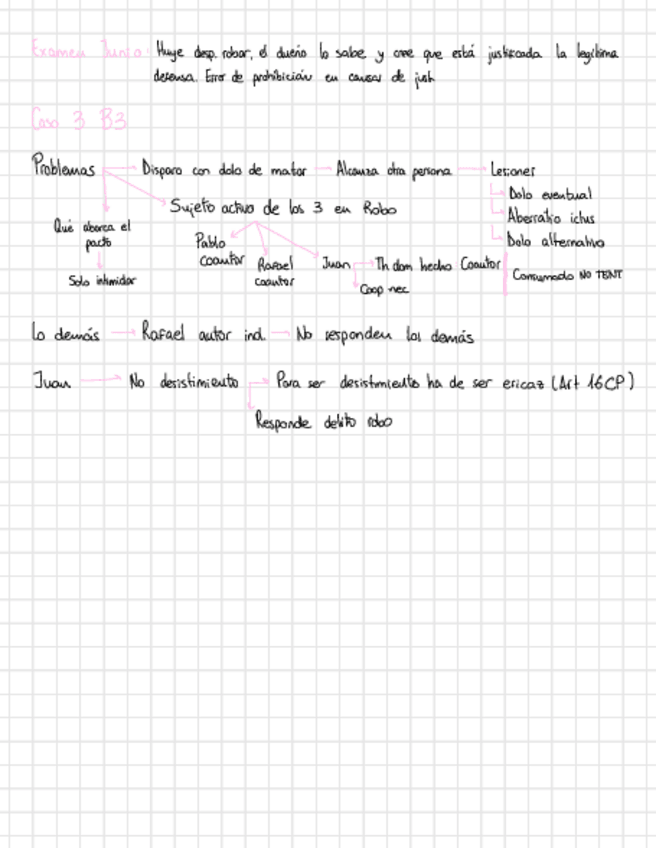 Examen Junio: Huye desp. robar, el dueño lo sabe y cree que está justificada la legítima
defensa. Error de prohibición en causas de just.
Caso 3 B3
Problemas → Disparo con dolo de matar → Alcanza otra persona → Lesiones
Dolo eventual
Sujeto activo de los 3 en Robo
Aberratio ictus
Qué abarca el
pacto
Dolo alternativo
Pablo
coautor
Rafael
coautor
Juan → Th dom hecho Coautor
Consumado NO TENT
Solo intimidar
Coop nec
Lo demás → Rafael autor ind. → No responden los demás
Juan → No desistimiento → Para ser desistimiento ha de ser eficaz (Art 16CP)
Responde delito robo